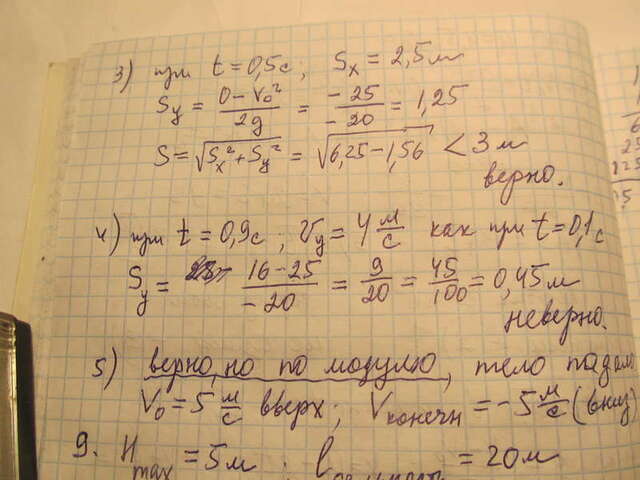 3) при t = 0,5 с ; Sx = 2,5 м
Sy = (0 - V₀²)/(2g) = (-25)/(-20) = 1,25
S = √(Sx² + Sy²) = √(6,25 - 1,56) < 3 м
верно.
4) при t = 0,9 с ; Vy = 4 м/с как при t = 0,1 с
Sy = (16 - 25)/(-20) = 9/20 = 45/100 = 0,45 м
неверно.
5) верно, но по модулю, тело падало
V₀ = 5 м/с вверх ; Vконечн = -5 м/с (вниз)
9. Hmax = 5 м ; l = 20 м